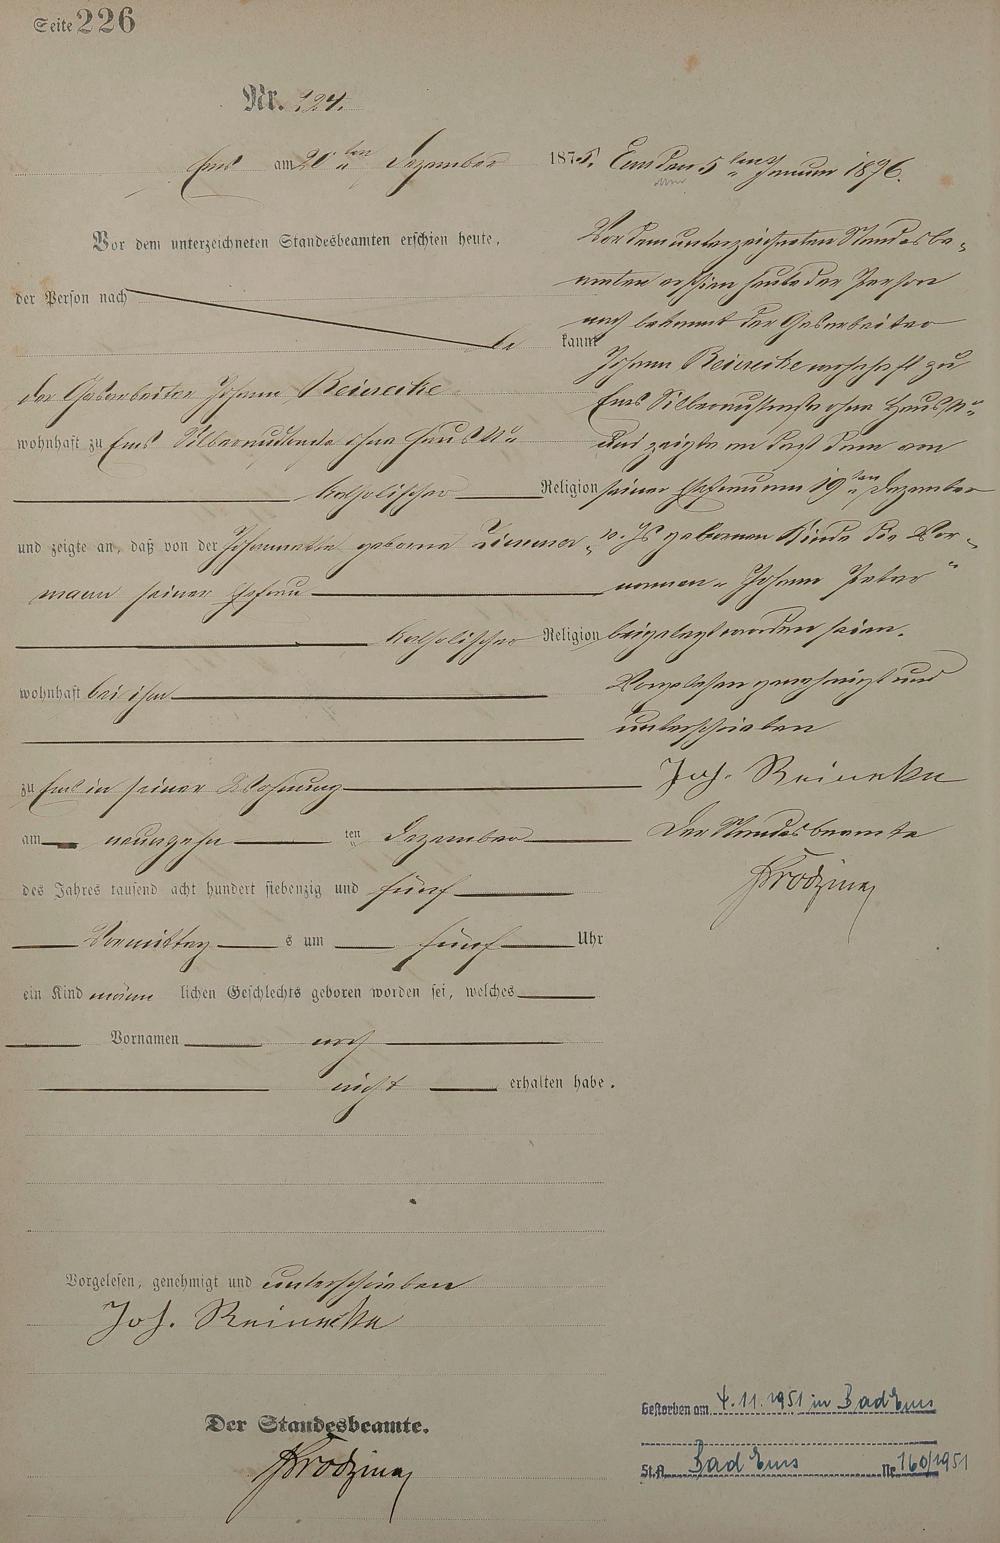 Seite 226
Nr. 124.
Ems am 20 ten Dezember 1875.
Vor dem unterzeichneten Standesbeamten erschien heute,
der Person nach
kannt
der Gasarbeiter Johann Reinecke
wohnhaft zu Ems Silberaustraße ohne Haus Nr
katholischer Religion
und zeigte an, daß von der Johannette geborene Zimmer-
mann seiner Ehefrau
katholischer Religion
wohnhaft bei ihm
zu Ems in seiner Wohnung
am neunzehn ten Dezember
des Jahres tausend acht hundert siebenzig und fünf
Vormittag s um fünf Uhr
ein Kind männ lichen Geschlechts geboren worden sei, welches
Vornamen noch
nicht erhalten habe.
Vorgelesen, genehmigt und unterschrieben
Joh. Reinecke
Der Standesbeamte.
Ems den 5 ten Januar 1876.
Vor dem unterzeichneten Standesbe-
amten erschien heute der Person
nach bekannt der Gasarbeiter
Johann Reinecke wohnhaft zu
Ems Silberaustraße ohne Haus Nr
und zeigte an daß dem von
seiner Ehefrau am 19 ten Dezember
v. Js geborenen Kinde die Vor-
namen "Johann Peter"
beigelegt worden seien.
Vorgelesen genehmigt und
unterschrieben
Joh. Reinecke
Der Standesbeamte
Gestorben am 4.11.1951 in Bad Ems
St.A. Bad Ems Nr. 160/1951